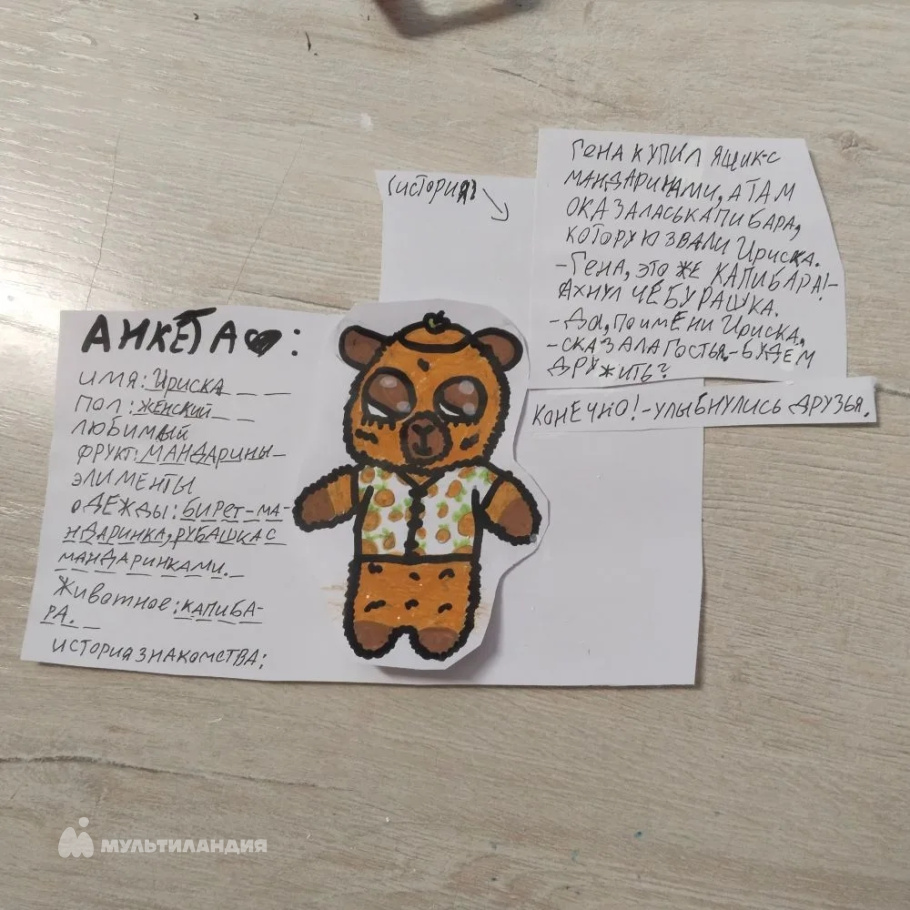 АНКЕТА:
ИМЯ: Ириска
ПОЛ: женский
ЛЮБИМЫЙ
ФРУКТ: МАНДАРИНЫ
ЭЛИМЕНТЫ
ОДЕЖДЫ: БИРЕТ-МА-
НДАРИНКА, РУБАШКА С
МАНДАРИНКАМИ.
Животное: КАПИБА-
РА.
ИСТОРИЯ ЗНАКОМСТВА:
(ИСТОРИЯ)
ГЕНА КУПИЛ ЯЩИК С
МАНДАРИНАМИ, А ТАМ
ОКАЗАЛАСЬ КАПИБАРА,
КОТОРУЮ ЗВАЛИ Ириска.
-ГЕНА, ЭТО ЖЕ КАПИБАРА!-
АХНУЛ ЧЕБУРАШКА.
-ДА, ПО ИМЕНИ Ириска,
-СКАЗАЛА ГОСТЬЯ.-БУДЕМ
ДРУЖИТЬ?
КОНЕЧНО!-УЛЫБНУЛИСЬ ДРУЗЬЯ.
МУЛЬТИЛАНДИЯ